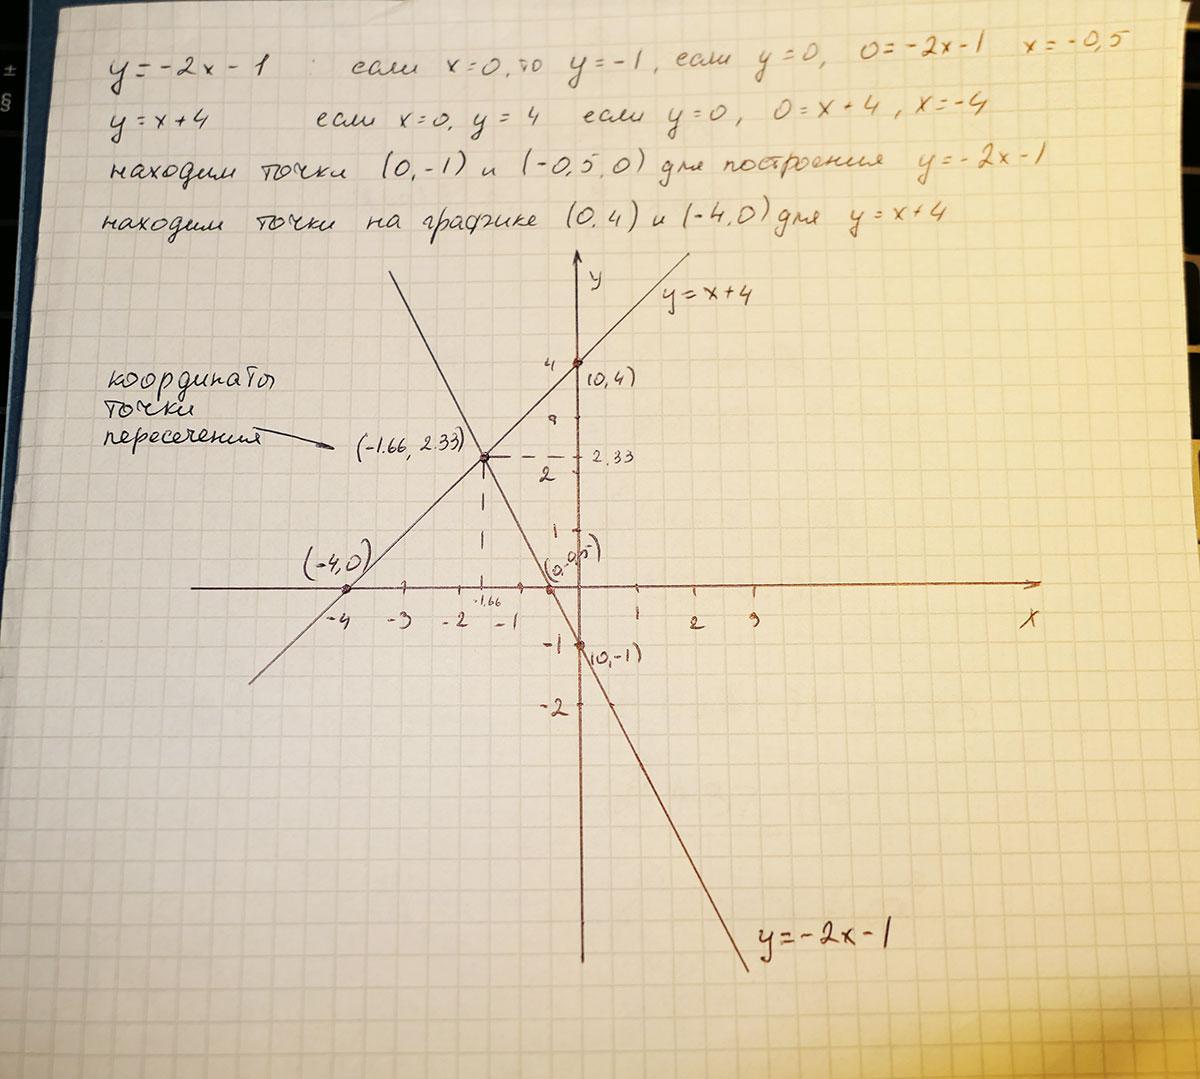 y=-2x-1 если x=0, то y=-1, если y=0, 0=-2x-1 x=-0,5
y=x+4 если x=0, y=4 если y=0, 0=x+4, x=-4
находим точки (0,-1) и (-0,5,0) для построения y=-2x-1
находим точки на графике (0,4) и (-4,0) для y=x+4
y
y=x+4
4
(0,4)
координаты
точки
пересечения
3
(-1.66, 2.33)
2.33
2
1
(-4,0)
(0,-0,5)
-4 -3 -2 -1.66 -1 1 2 3
x
-1
(0,-1)
-2
y=-2x-1
±
§